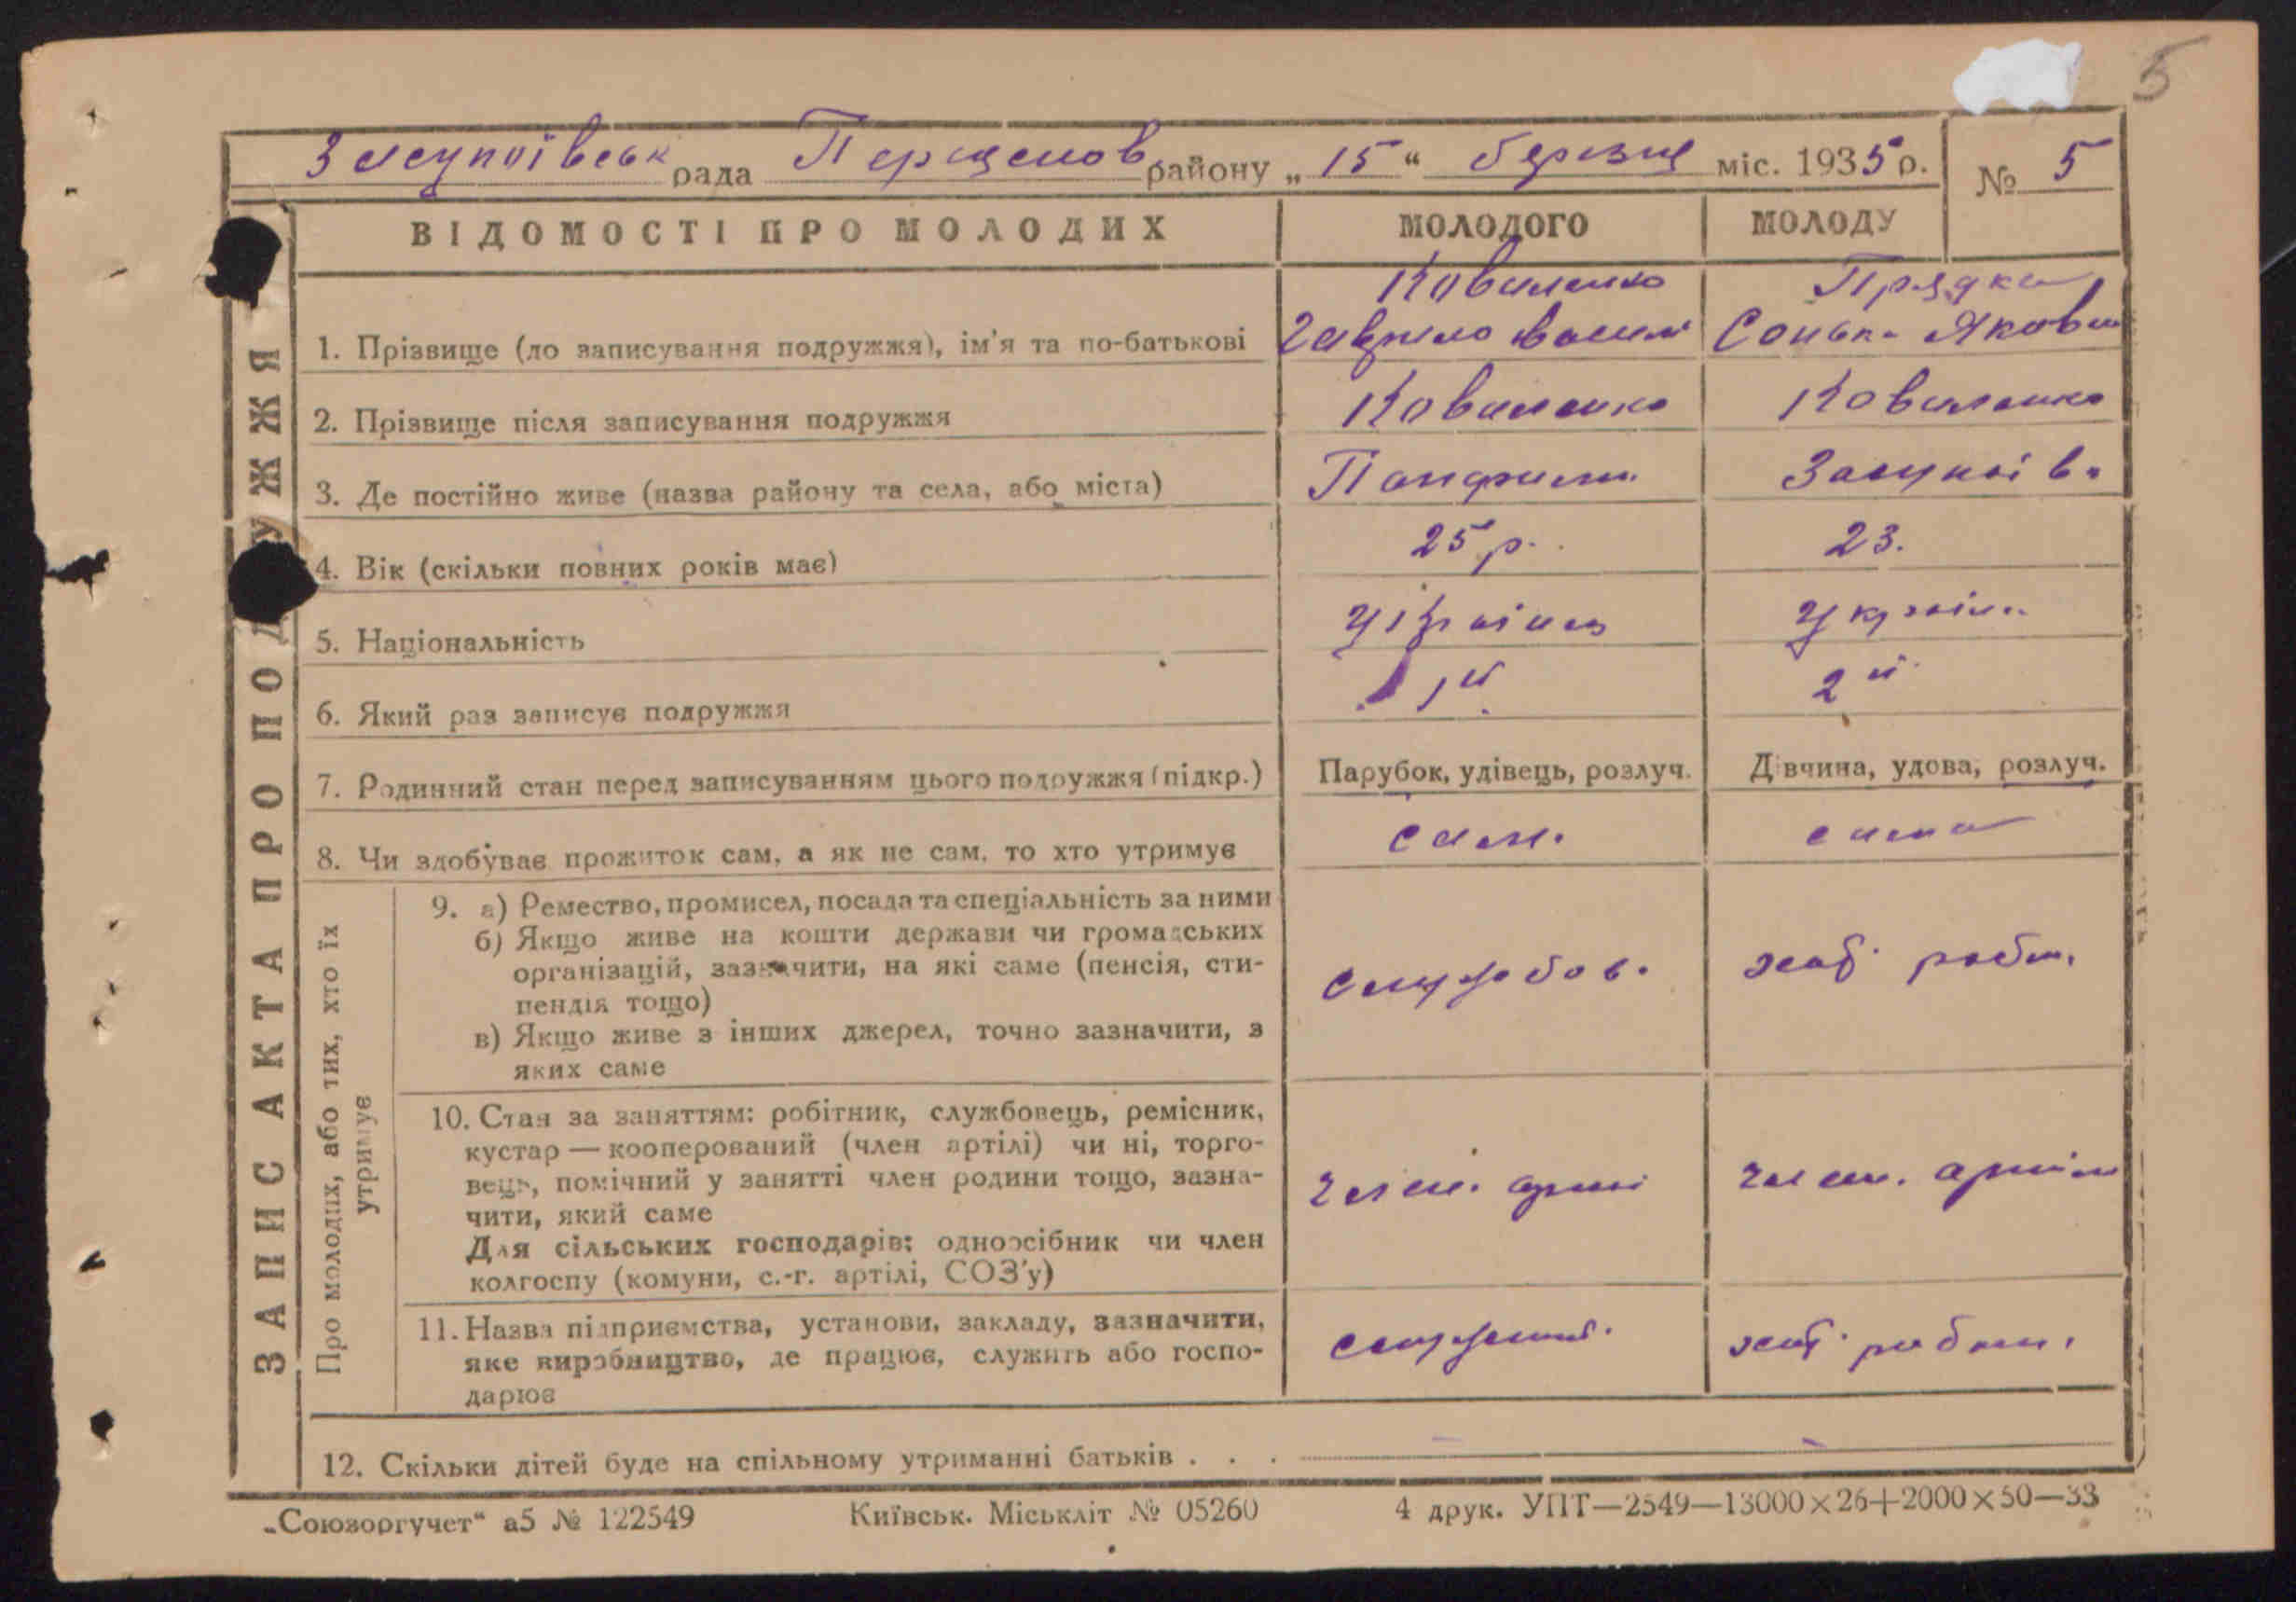 5
Засупоївськ рада Пирятинов району „15“ березня міс. 1935 р. № 5
ЗАПИС АКТА ПРО ПОДРУЖЖЯ
ВІДОМОСТІ ПРО МОЛОДИХ МОЛОДОГО МОЛОДУ
Коваленко Прядка
1. Прізвище (до записування подружжя), ім'я та по-батькові Гаврило Васил Сонька Яковл
2. Прізвище після записування подружжя Коваленко Коваленко
3. Де постійно живе (назва району та села, або міста) Панфили Засупоівк
4. Вік (скільки повних років має) 25 р. 23.
5. Національність Україн Україн
6. Який раз записує подружжя 1й 2й
7. Родинний стан перед записуванням цього подружжя (підкр.) Парубок, удівець, розлуч. Дівчина, удова, розлуч.
8. Чи здобуває прожиток сам, а як не сам, то хто утримує сам. сама
Про молодих, або тих, хто їх
утримує
9. а) Ремество, промисел, посада та спеціальність за ними
б) Якщо живе на кошти держави чи громадських
організацій, зазначити, на які саме (пенсія, сти-
пендія тощо)
в) Якщо живе з інших джерел, точно зазначити, з
яких саме
службов. хаб. робт.
10. Стан за заняттям: робітник, службовець, ремісник,
кустар — кооперований (член артілі) чи ні, торго-
вець, помічний у занятті член родини тощо, зазна-
чити, який саме
Для сільських господарів: одноосібник чи член
колгоспу (комуни, с.-г. артілі, СОЗ'у)
член. арті член. артіл
11. Назва підприємства, установи, закладу, зазначити,
яке виробництво, де працює, служить або госпо-
дарює
12. Скільки дітей буде на спільному утриманні батьків . . . — —
„Союзоргучет“ а5 № 122549 Київськ. Міськліт № 05260 4 друк. УПТ—2549—13000×26+2000×50—33